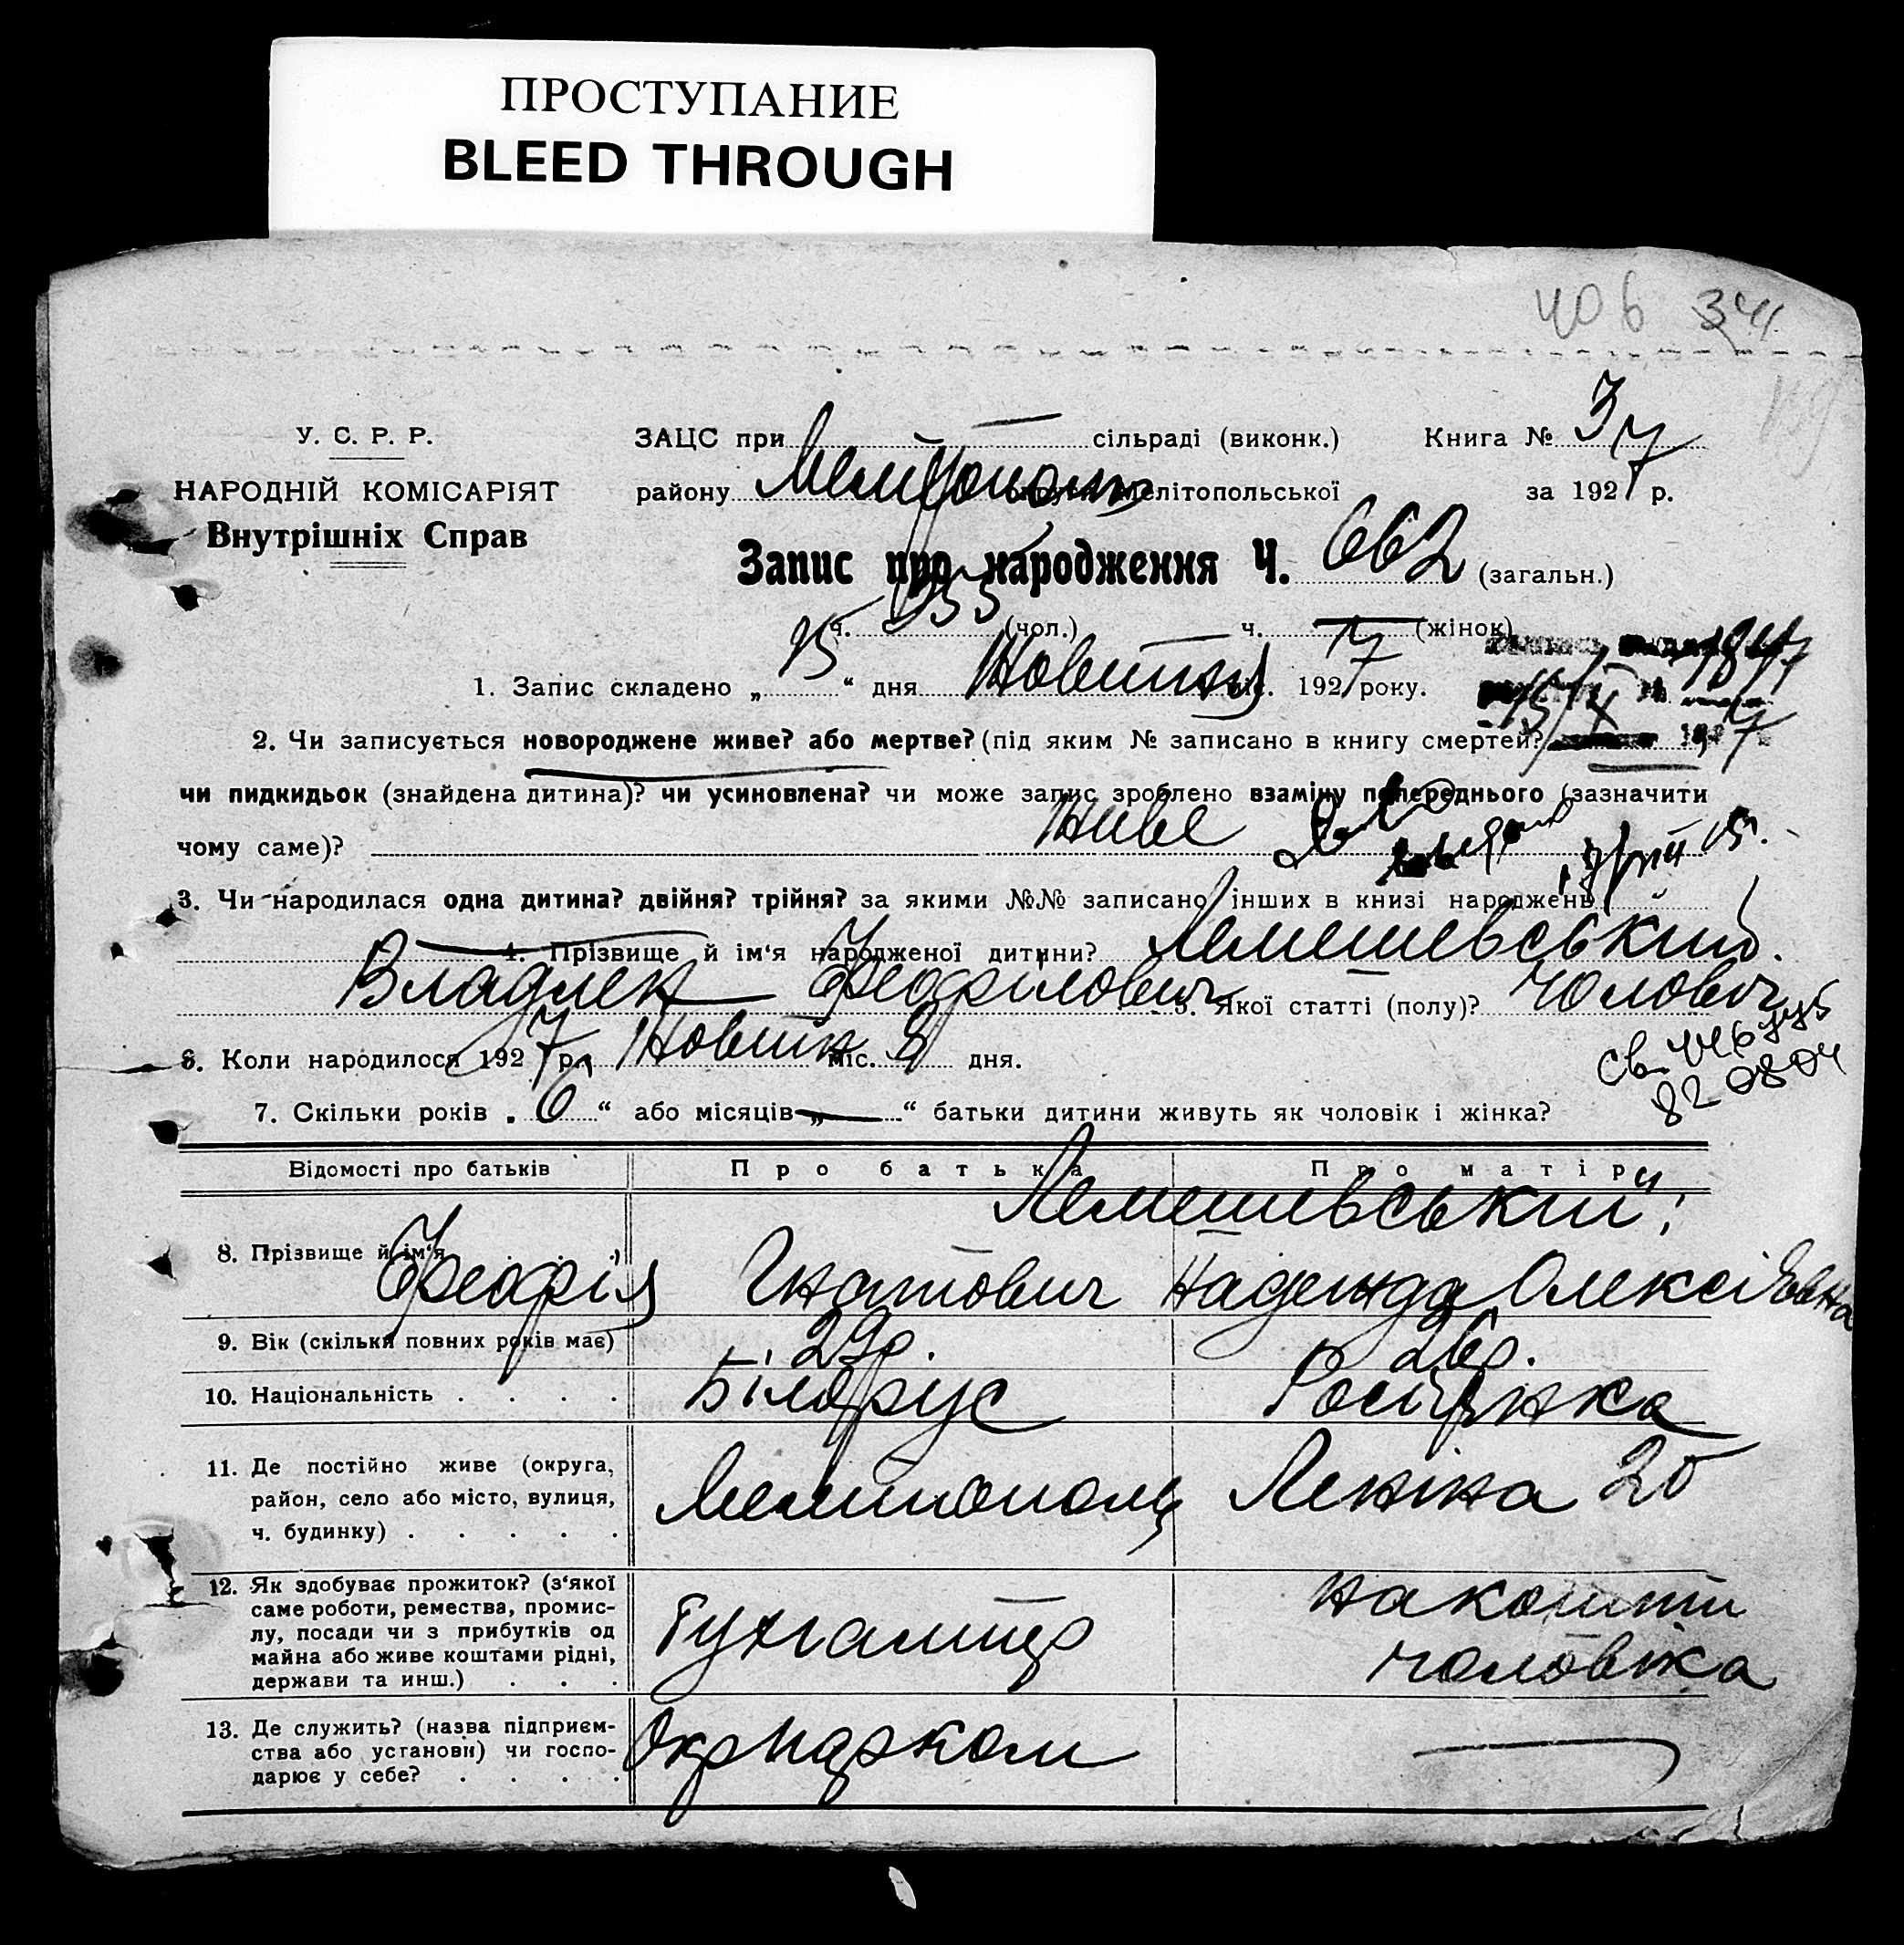 ПРОСТУПАНИЕ
BLEED THROUGH
406 341
У. С. Р. Р.
НАРОДНІЙ КОМІСАРІЯТ
Внутрішніх Справ
ЗАЦС при — сільраді (виконк.) Книга № 37
району Мелітополь Мелітопольської за 1927 р.
Запис про народження Ч. 662 (загальн.)
ч. 355 (чол.) ч. — (жінок)
1. Запис складено „ 15 “ дня Жовтня міс. 1927 року.
2. Чи записується новороджене живе? або мертве? (під яким № записано в книгу смертей?
чи пидкидьок (знайдена дитина)? чи усиновлена? чи може запис зроблено взаміну попереднього (зазначити
чому саме)? Живе
3. Чи народилася одна дитина? двійня? трійня? за якими №№ записано інших в книзі народжень
4. Прізвище й ім‘я народженої дитини? Лемешевський
Владлен Феофілович 5. Якої статті (полу)? Чоловіч
6. Коли народилося 1927 р. Жовтн міс. 9 дня.
7. Скільки років „ 6 “ або місяців „ — “ батьки дитини живуть як чоловік і жінка?
820804
Відомості про батьків Про батька Про матір
Лемешевський
8. Прізвище й ім‘я Феофіл Гнатович Надежда Олексіївна
9. Вік (скільки повних років має) 29р. 26р.
10. Національність . . . . Білорус Росіянка
11. Де постійно живе (округа,
район, село або місто, вулиця,
ч. будинку) . . . . . Мелітополь Леніна 20
12. Як здобуває прожиток? (з‘якої
саме роботи, ремества, промис-
лу, посади чи з прибутків од
майна або живе коштами рідні,
держави та инш.) . . . Бухгалтер на кошти
чоловіка
13. Де служить? (назва підприєм-
ства або установи) чи госпо-
дарює у себе? . . . . —